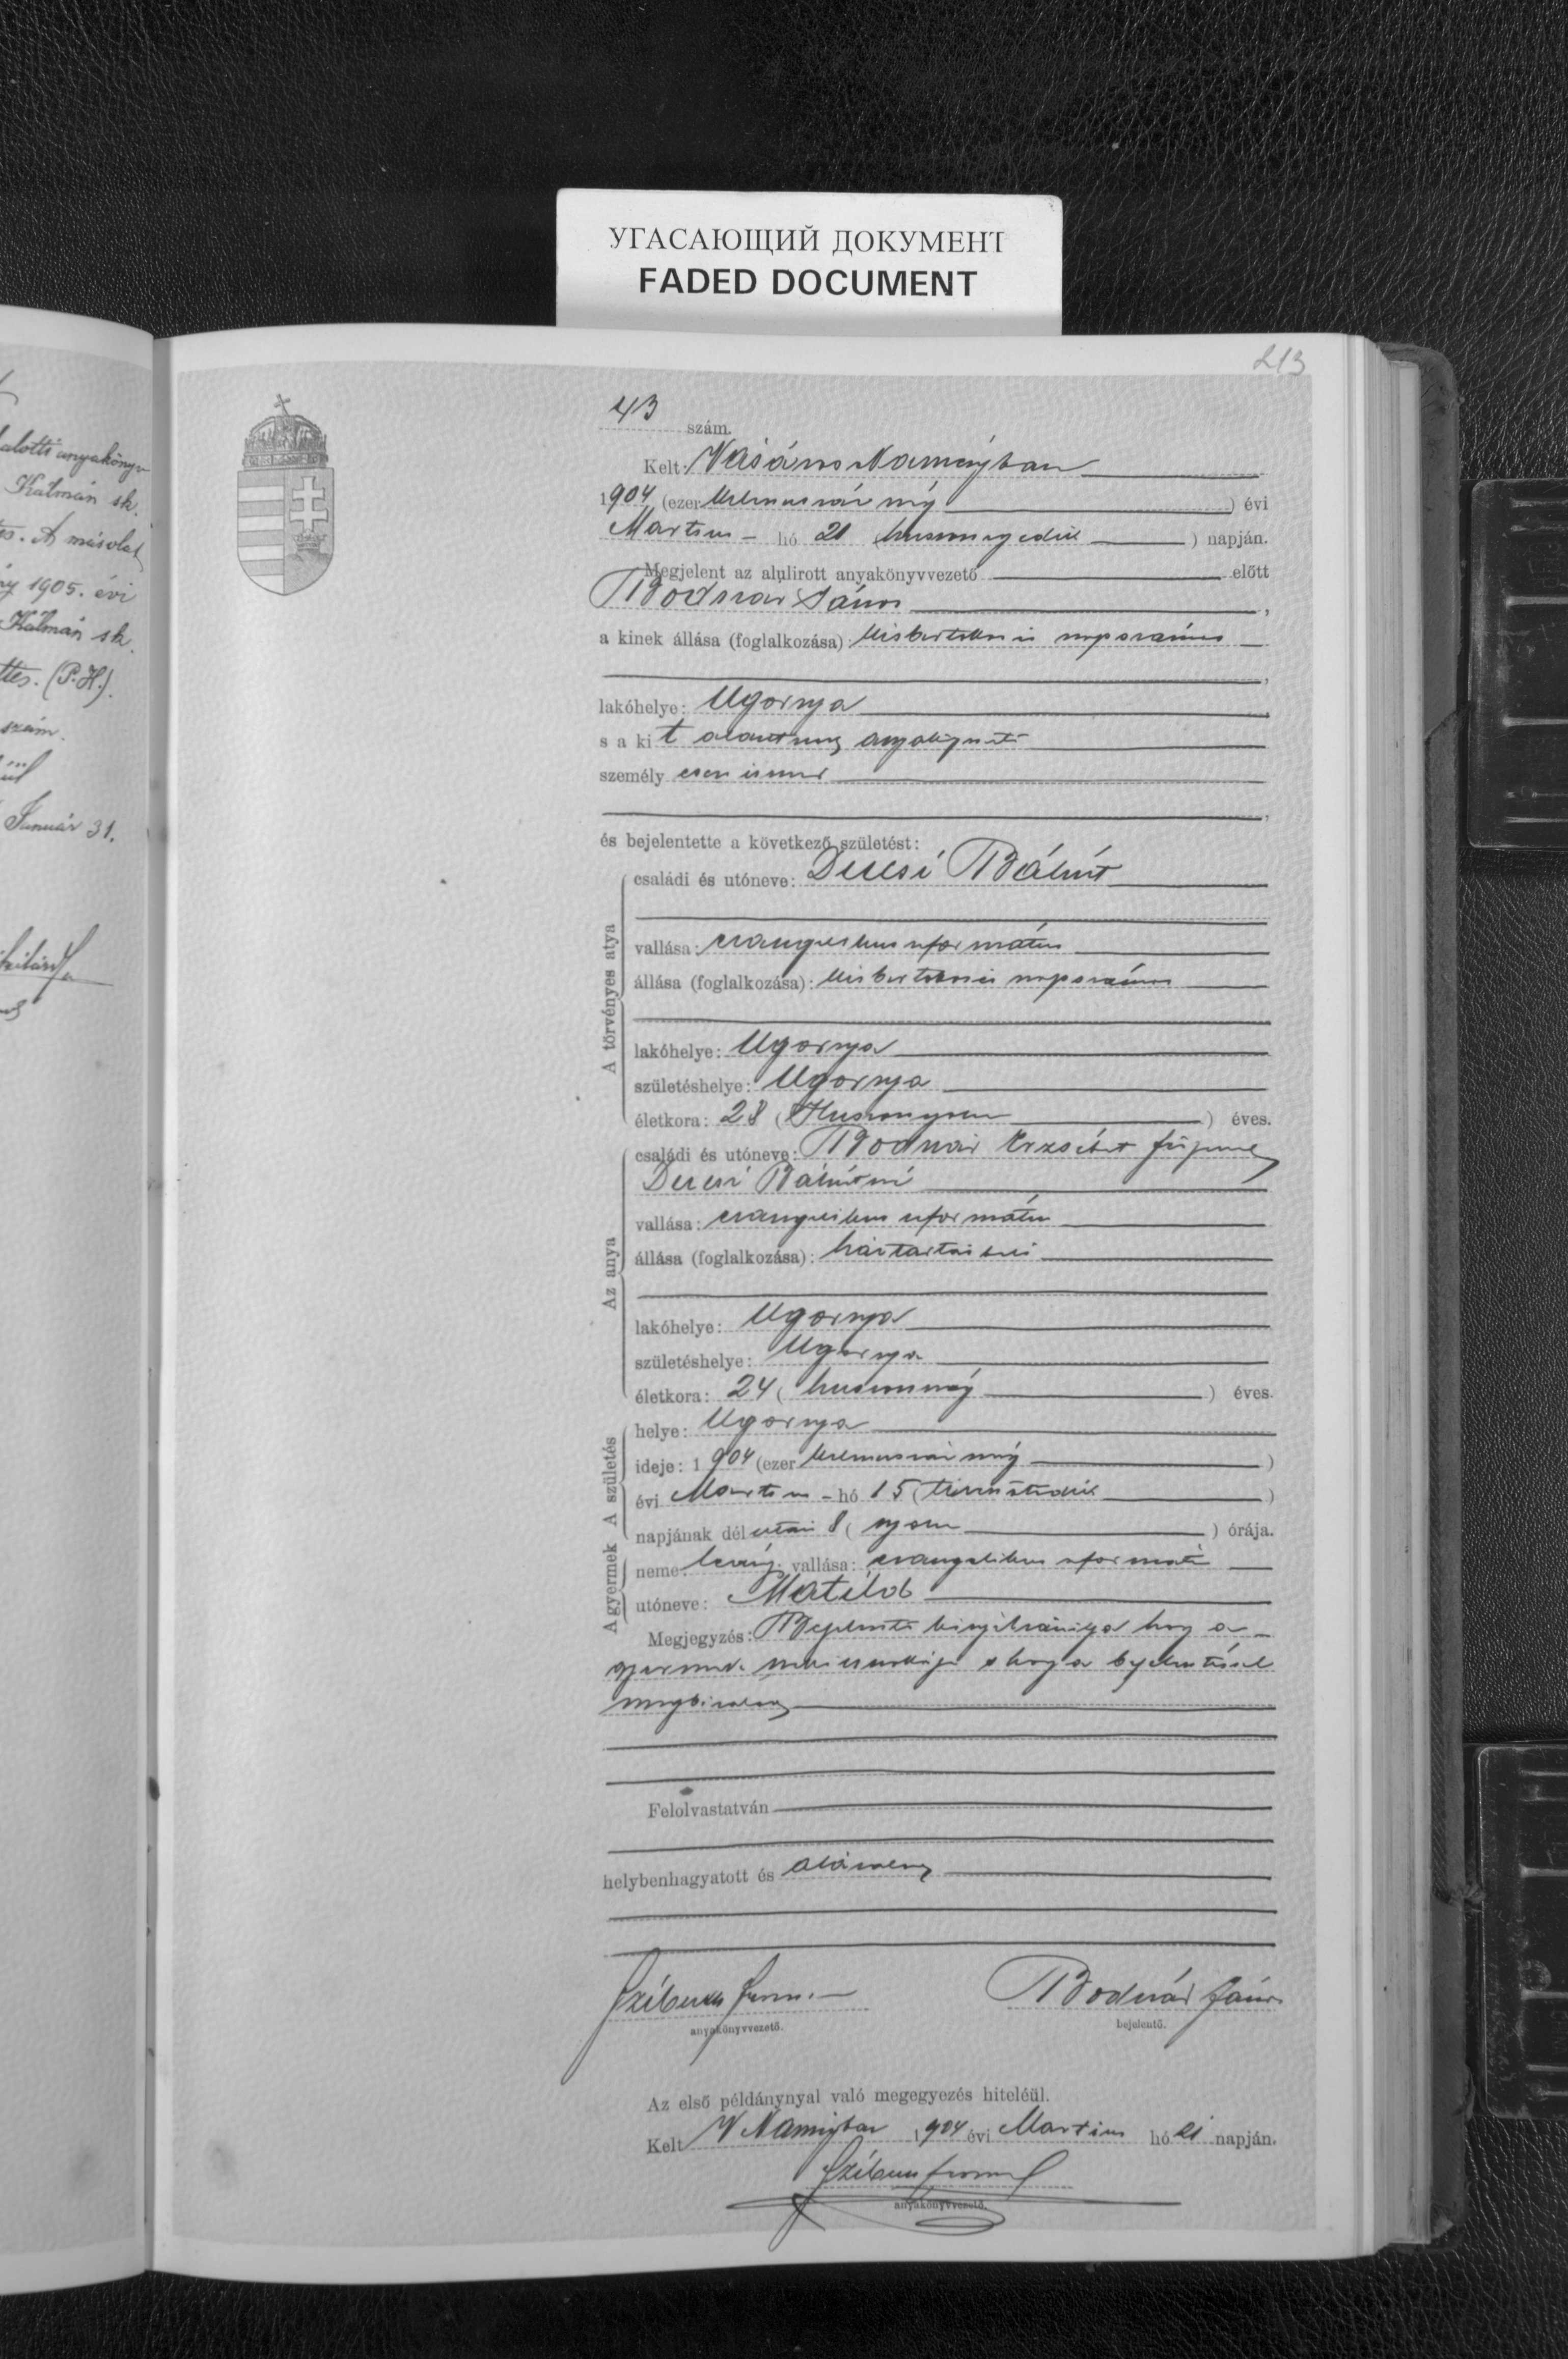 УГАСАЮЩИЙ ДОКУМЕНТ
FADED DOCUMENT
213
alotti anyakönyv
Kálmán sk.
es. A másolat
1905. évi
Kálmán sk.
ttes. (P.H.).
szám.
Január 31.
43 szám.
Kelt: Vásáros Naményban
1904 (ezer kilencszáz négy) évi
Martius hó 21 (huszonegyedik) napján.
Megjelent az alulirott anyakönyvvezető előtt
Bodnár János,
a kinek állása (foglalkozása): kisbirtokos és napszámos
,
lakóhelye: Ugornya,
s a kit alantirott anyakönyvvezető
személyesen ismer
,
és bejelentette a következő születést:
A törvényes atya
családi és utóneve: Decsi Bálint
vallása: evangelikus református
állása (foglalkozása): kisbirtokos és napszámos
lakóhelye: Ugornya
születéshelye: Ugornya
életkora: 28 (Huszonnyolc) éves.
Az anya
családi és utóneve: Bodnár Erzsébet férjezett
Decsi Bálintné
vallása: evangelikus református
állása (foglalkozása): háztartásbeli
lakóhelye: Ugornya
születéshelye: Ugornya
életkora: 24 (huszonnégy) éves.
A születés
helye: Ugornya
ideje: 1904 (ezer kilencszáz négy)
évi Martius hó 15 (tizenötödik)
napjának délutáni 8 (nyolc) órája.
A gyermek
neme: leány vallása: evangelikus református
utóneve: Matild
Megjegyzés: Bejelentő bizonyítja hogy a
gyermek s hogy a bejelentéssel
megbizatott
Felolvastatván
helybenhagyatott és aláíratott
Bodnár János
anyakönyvvezető. bejelentő.
Az első példánynyal való megegyezés hiteléül.
Kelt V Naményban 1904 évi Martius hó 21 napján.
anyakönyvvezető.